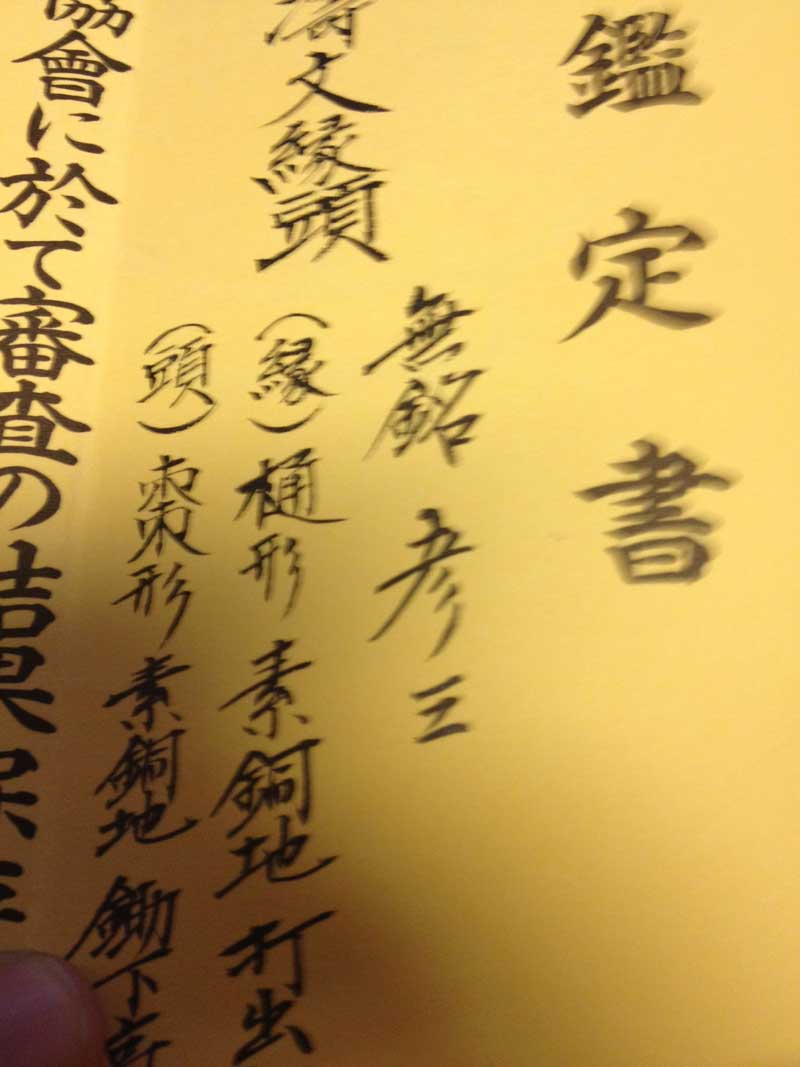 鑑定書
無銘 彦三
濤文縁頭
(縁)桶形 素銅地 打出
(頭)棗形 素銅地 鋤下
協會に於て審査の結果